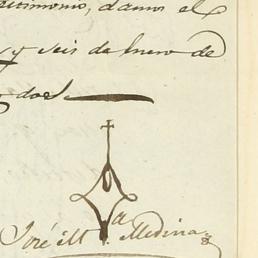 testimonio, damos el
y seis de Enero de
dos.
José M.ª Medina